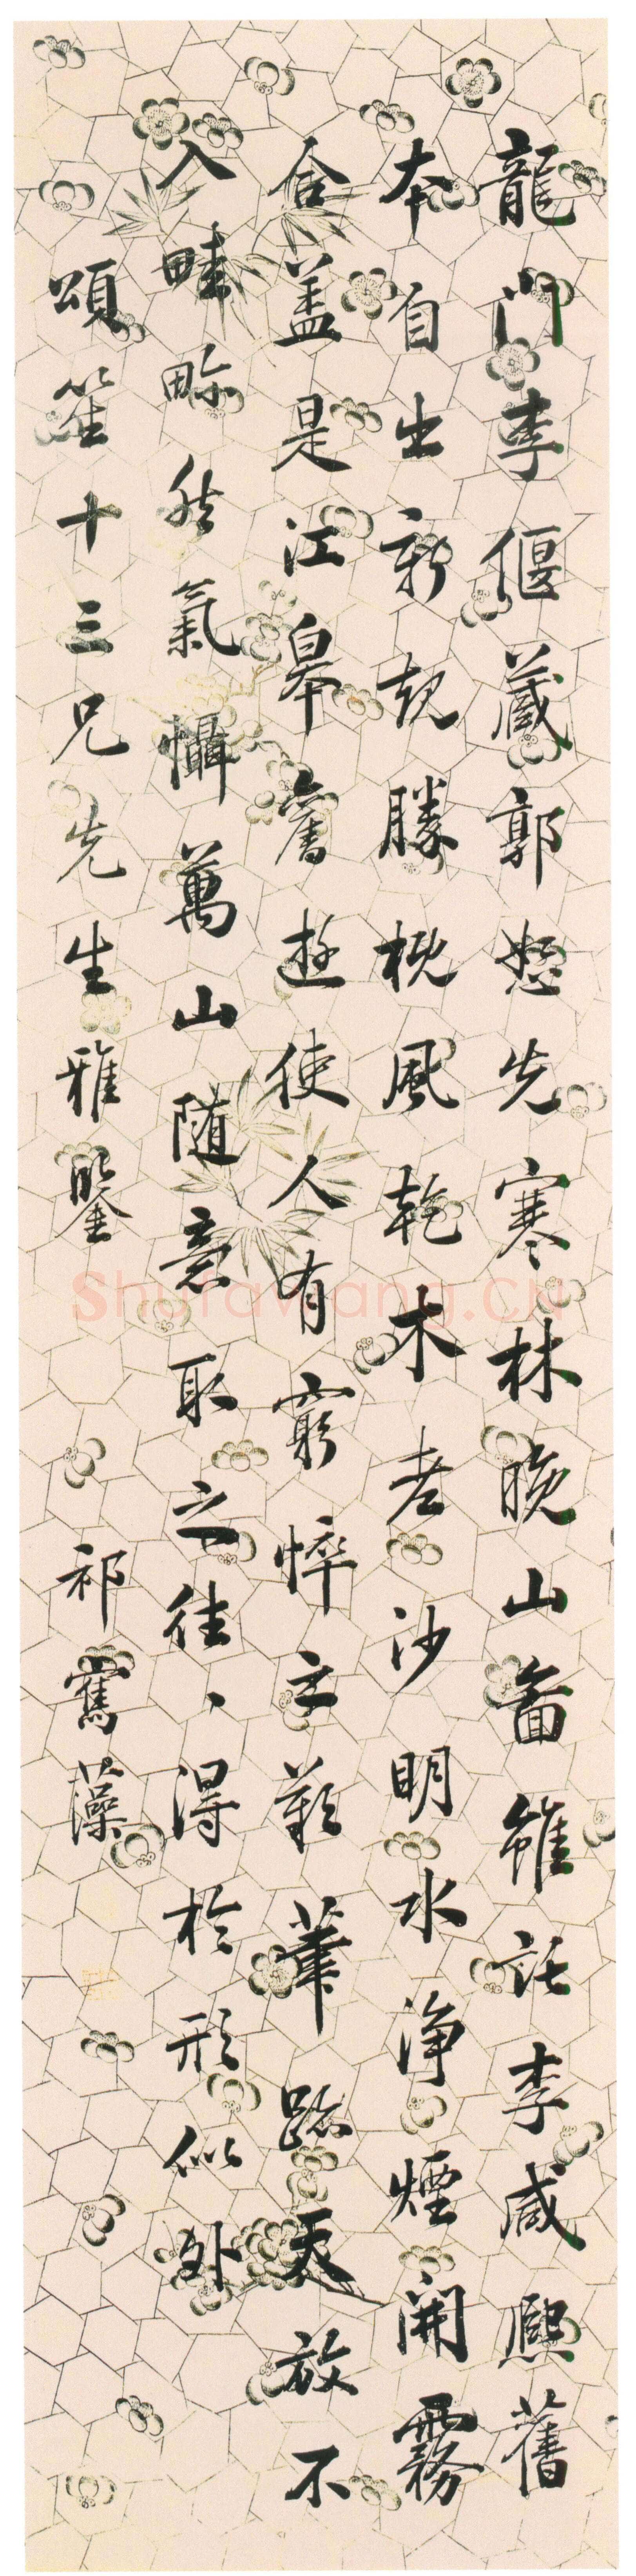 龍門李偃藏郭恕先寒林晚山圖雖託李咸熙舊
本自出新規勝概風乾木老沙明水浄煙開霧
合蓋是江臯舊遊使人有窮悴之歎筆跡天放不
入畦畛然氣懾萬山随意取之往、得於形似外
頌笙十三兄先生雅鑒 祁寯藻
Shufawang.CN